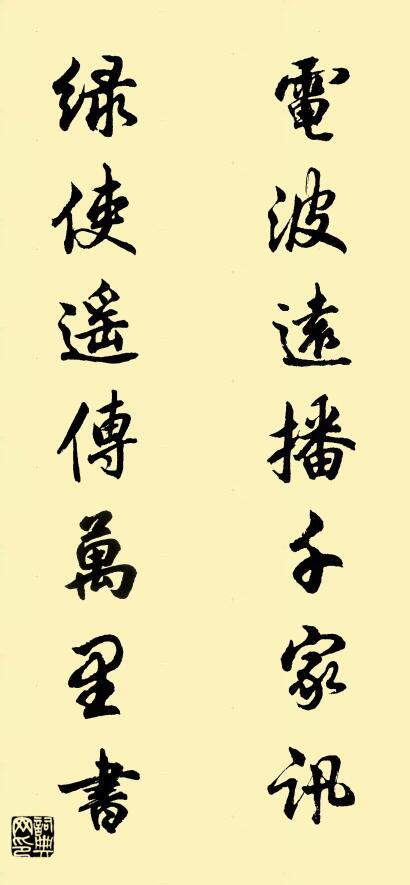 電波遠播千家訊
綠使遥傳萬里書
詞典網印